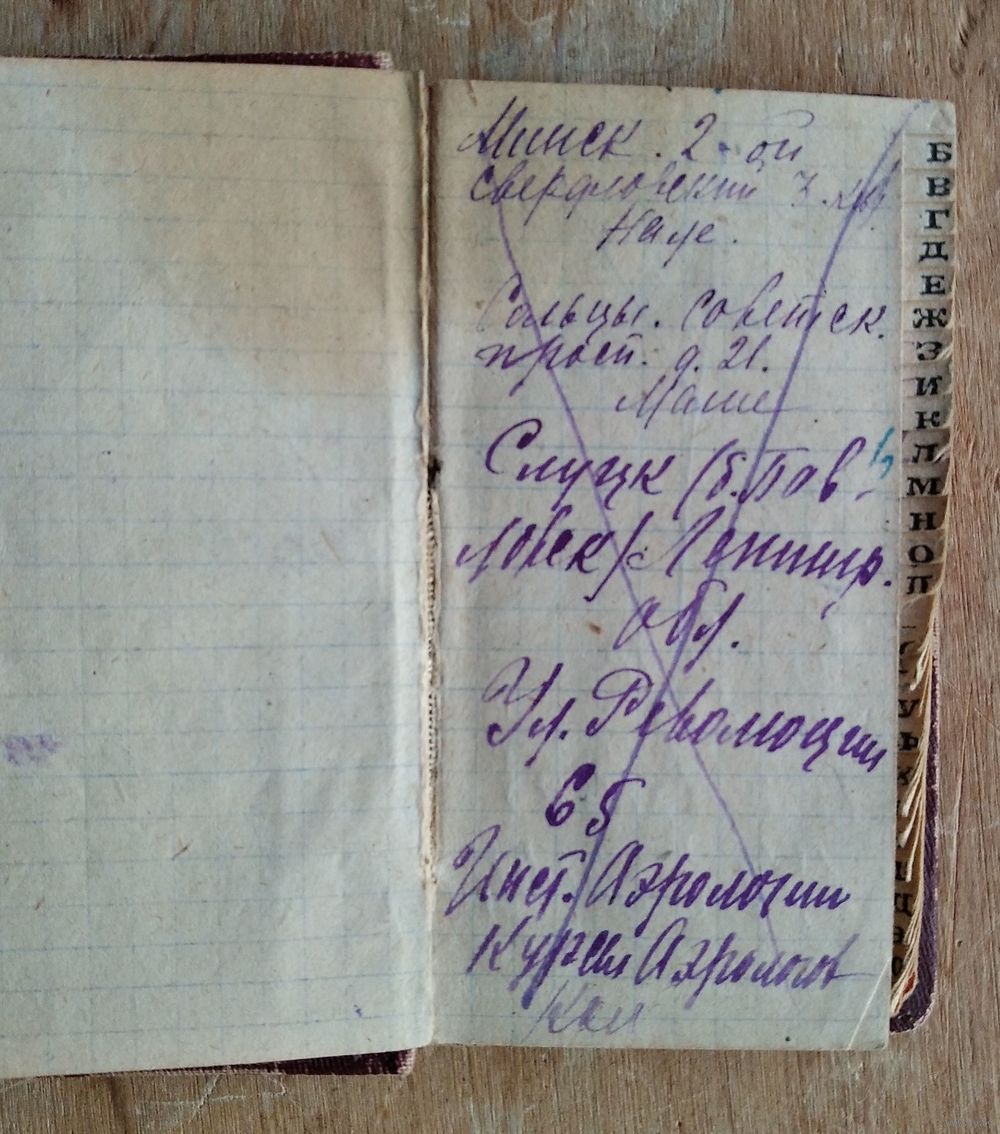 Минск. 2-ой
Свердловский 7.
Сольцы. Советск.
просп. д. 21.
Маше
Слуцк (б. Пав-
ловск) Ленингр.
обл.
Ул. Революции
Инст. Аэрологии
Курсы Аэрологов
Б
В
Г
Д
Е
Ж
З
И
К
Л
М
Н
О
П